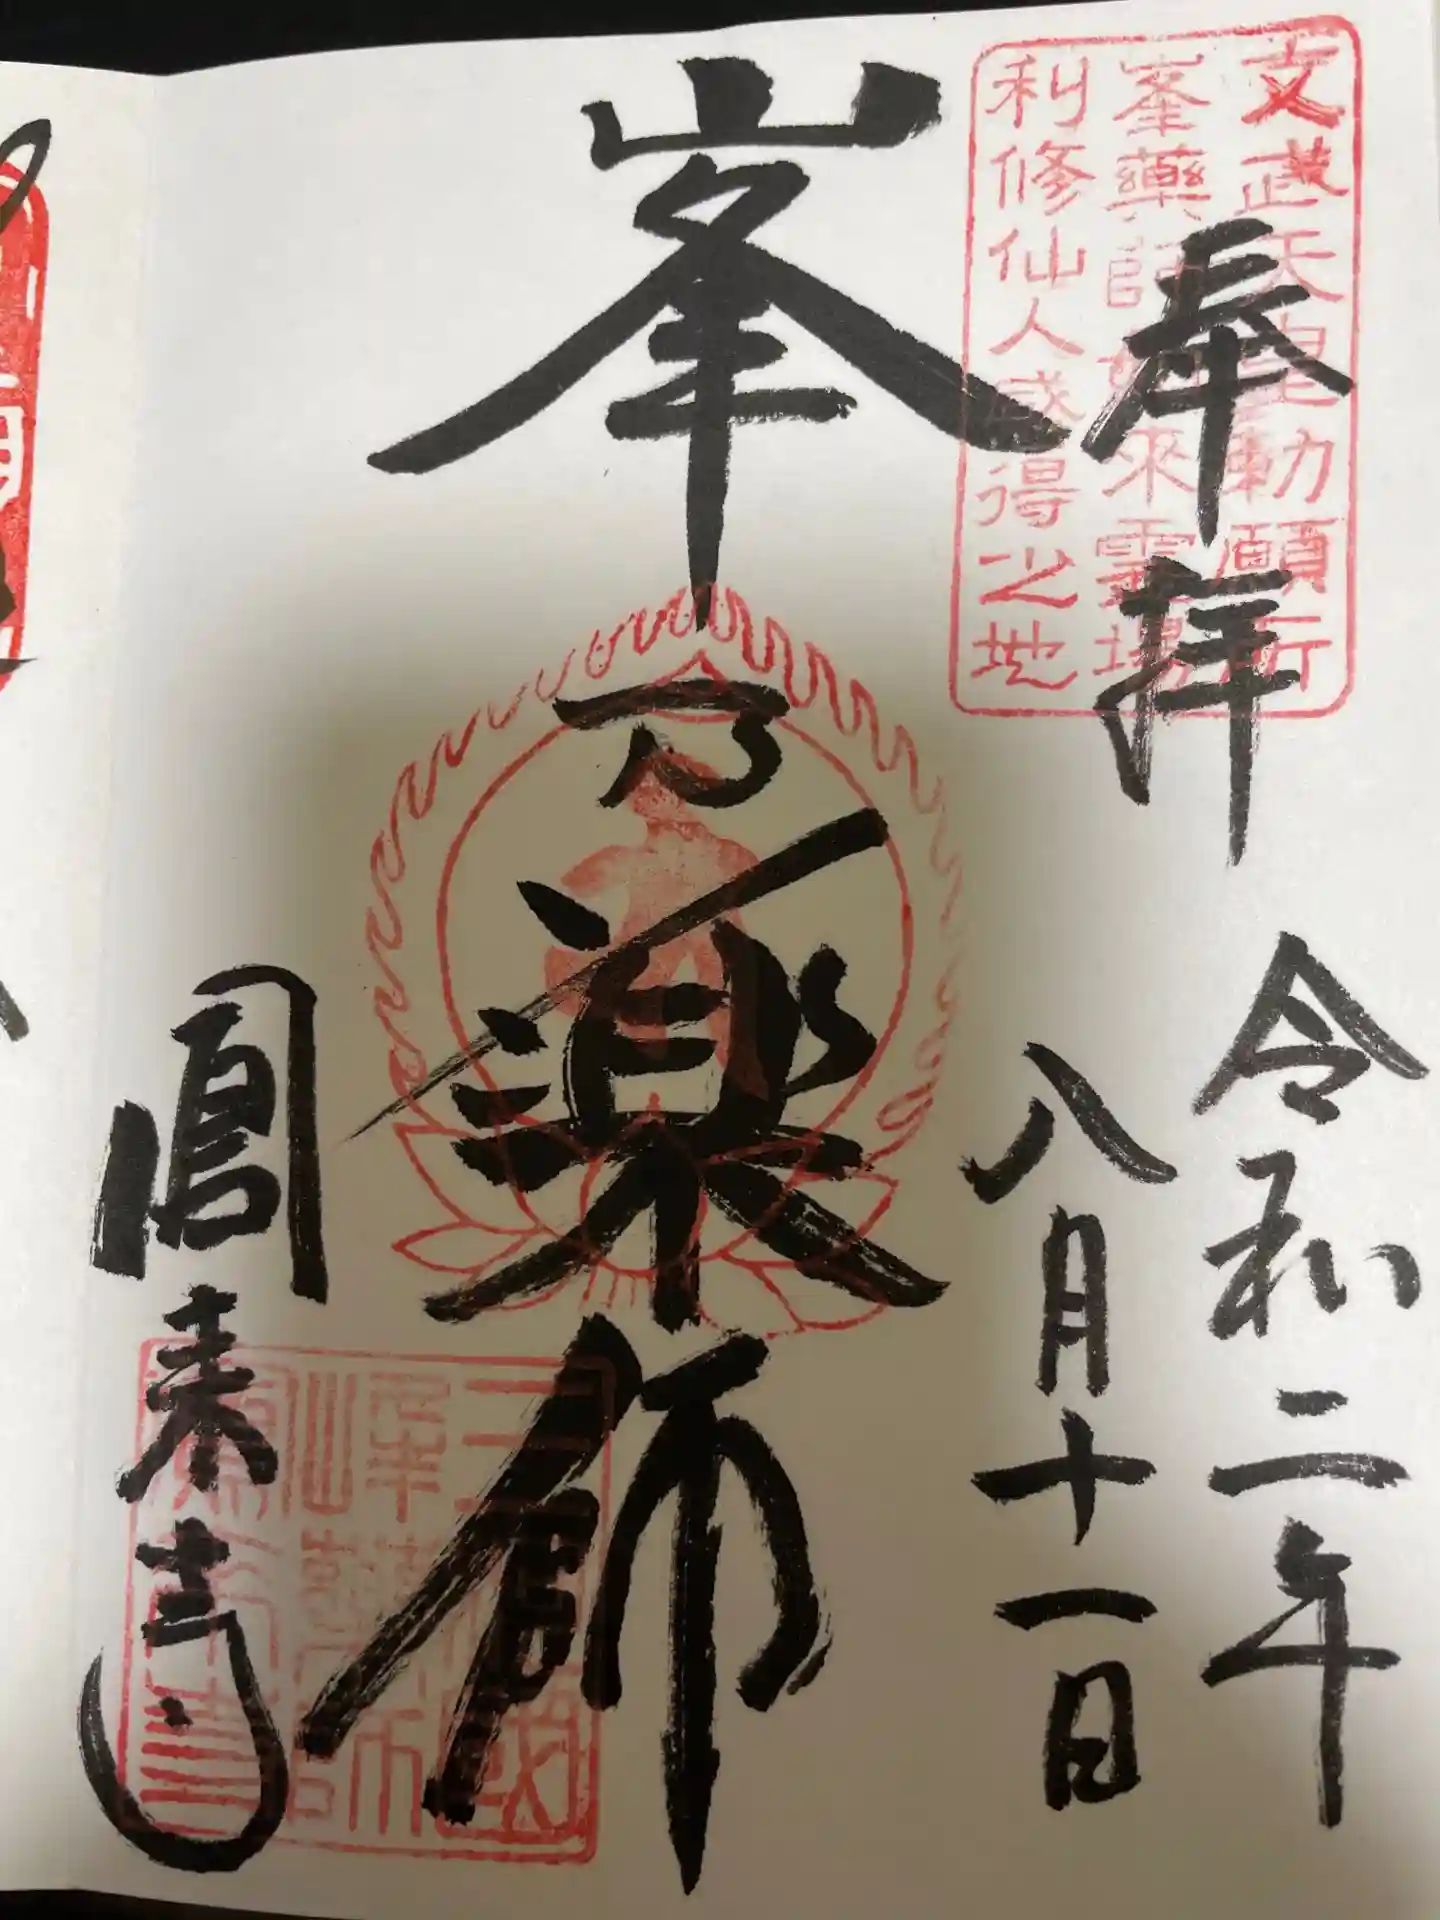 文武天皇勅願所
峯藥師如來靈場
利修仙人感得之地
奉拝
令和二年
八月十一日
峯乃薬師
鳳来寺